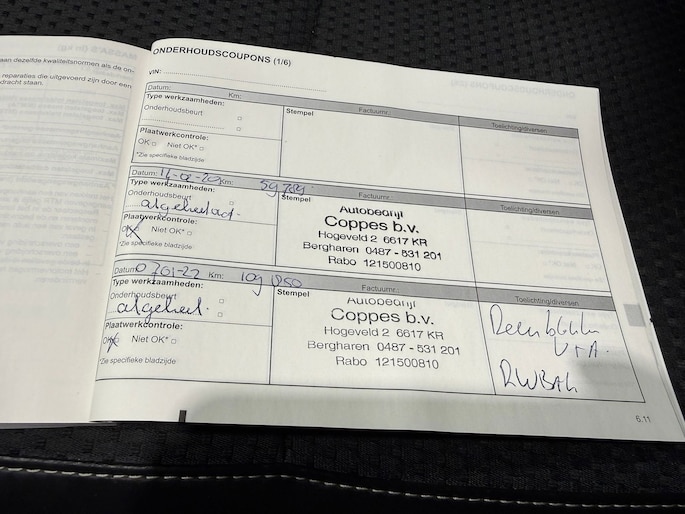 aan dezelfde kwaliteitsnormen als de on-
reparaties die uitgevoerd zijn door een
dracht staan.
ONDERHOUDSCOUPONS (1/6)
VIN:
Datum: Km: Factuurnr.:
Type werkzaamheden:
Stempel
Toelichting/diversen
Onderhoudsbeurt
Plaatwerkcontrole:
OK Niet OK*
*Zie specifieke bladzijde
Datum: Km: Factuurnr.:
Type werkzaamheden:
Stempel
Toelichting/diversen
Onderhoudsbeurt
Plaatwerkcontrole:
OK Niet OK*
*Zie specifieke bladzijde
Autobedrijf
Coppes b.v.
Hogeveld 2 6617 KR
Bergharen 0487 - 531 201
Rabo 121500810
Datum 07-01-22 Km: 109 850 Factuurnr.:
Type werkzaamheden:
Stempel
Toelichting/diversen
Onderhoudsbeurt
Plaatwerkcontrole:
OK Niet OK*
*Zie specifieke bladzijde
Autobedrijf
Coppes b.v.
Hogeveld 2 6617 KR
Bergharen 0487 - 531 201
Rabo 121500810
6.11